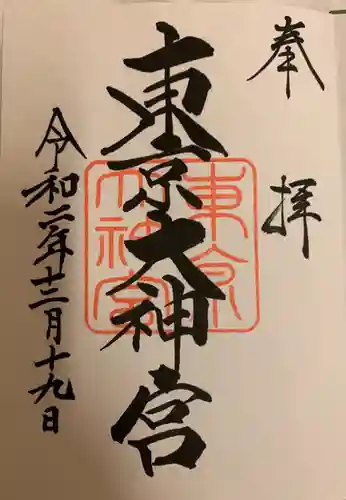 奉拝
東京大神宮
東京
大神宮
令和二年十二月十九日